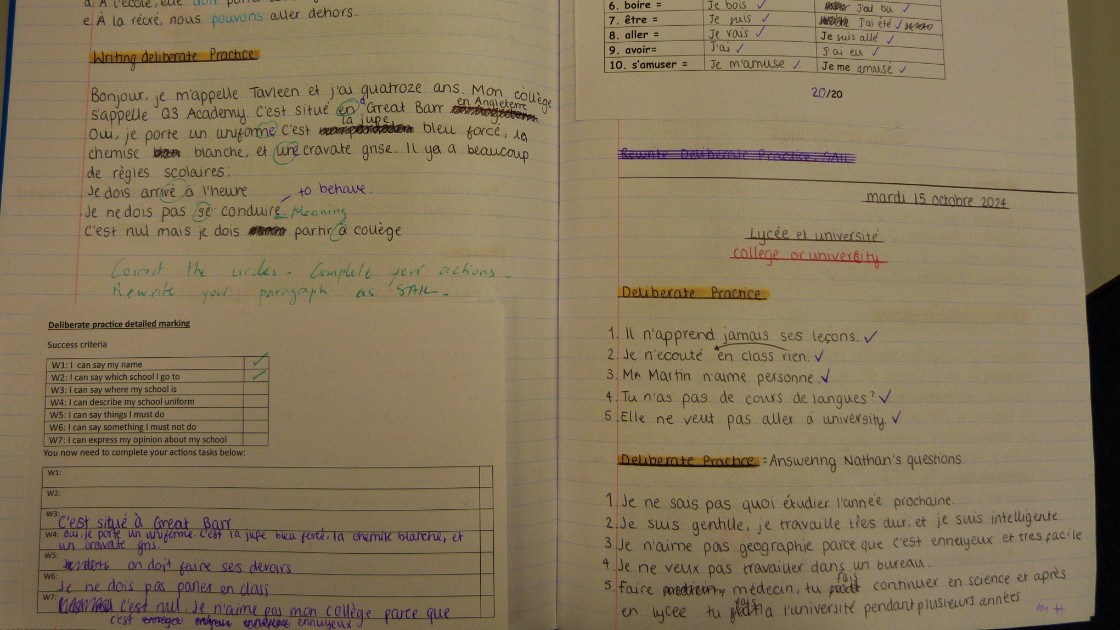 e. À la récré, nous pouvons aller dehors.
Writing deliberate Practice
Bonjour, je m'appelle Tavleen et j'ai quatroze ans. Mon collège
s'appelle Q3 Academy. C'est situé en à Great Barr en Angleterre
Oui, je porte un uniforme c'est la jupe bleu forcé, la
chemise blanche, et une cravate grise. Il ya a beaucoup
de règles scolaires:
Je dois arrivé à l'heure
to behave.
Je ne dois pas se conduire. Meaning
C'est nul mais je dois partir à collège
Correct the circles. Complete your actions.
Rewrite your paragraph as SAIL.
Deliberate practice detailed marking
Success criteria
W1: I can say my name ✓
W2: I can say which school I go to ✓
W3: I can say where my school is
W4: I can describe my school uniform
W5: I can say things I must do
W6: I can say something I must not do
W7: I can express my opinion about my school
You now need to complete your actions tasks below:
W1:
W2:
W3: C'est situé à Great Barr
W4: Oui, je porte un uniforme. C'est la jupe bleu forcé, la chemise blanche, et
un cravate gris.
W5: on doit faire ses devoirs
W6: Je ne dois pas parler en class
W7: c'est nul. Je n'aime pas mon collège parce que
c'est ennuyeux
6. boire = Je bois ✓ J'ai bu ✓
7. être = Je suis ✓ J'ai été ✓
8. aller = Je vais ✓ Je suis allé ✓
9. avoir= J'ai ✓ J'ai eu ✓
10. s'amuser = Je m'amuse ✓ Je me amusé ✓
20/20
Rewrite Deliberate Practice SAIL
mardi 15 octobre 2024
Lycée et université
college or university
Deliberate Practice
1. Il n'apprend jamais ses leçons. ✓
2. Je n'ecouté en class rien. ✓
3. Mr Martin n'aime personne. ✓
4. Tu n'as pas de cours de langues? ✓
5. Elle ne veut pas aller à university. ✓
Deliberate Practice = Answering Nathan's questions.
1 Je ne sais pas quoi étudier l'année prochaine.
2. Je suis gentille, je travaille très dur, et je suis intelligente.
3 Je n'aime pas geographie parce que c'est ennuyeux et tres facile.
4. Je ne veux pas travailler dans un bureau.
5. faire médecin, tu fais continuer en science et après
en lycee tu fais a l'université pendant plusieurs années